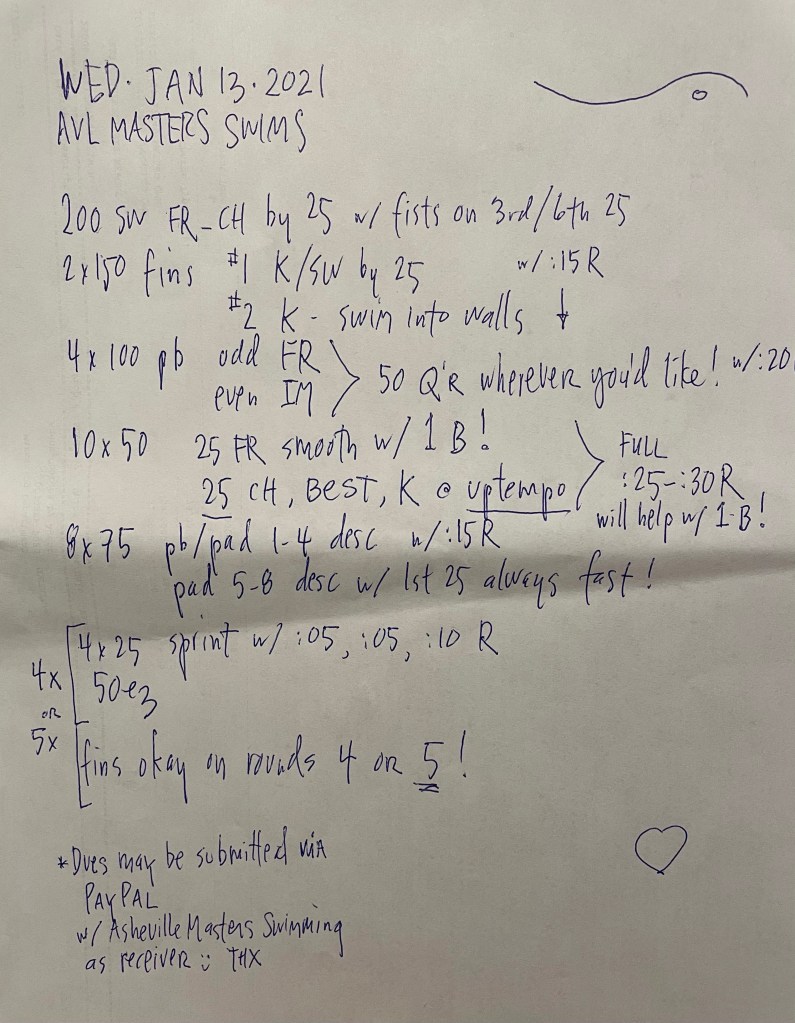 WED. JAN 13.2021
AVL MASTERS SWIMS
200 SW FR-CH by 25 w/ fists on 3rd/6th 25
2x150 fins #1 K/SW by 25 w/:15R
#2 K - swim into walls ↓
4x100 pb odd FR
even IM > 50 Q'R wherever you'd like! w/:20
10x50 25 FR smooth w/ 1 B!
25 CH, BEST, K @ uptempo > FULL
:25-:30R
will help w/ 1-B!
8x75 pb/pad 1-4 desc w/:15R
pad 5-8 desc w/ 1st 25 always fast!
4x25 sprint w/ :05, :05, :10 R
4x 50 ez
OR
5x
fins okay on rounds 4 or 5!
*Dues may be submitted via
PAYPAL
w/ Asheville Masters Swimming
as receiver :) THX